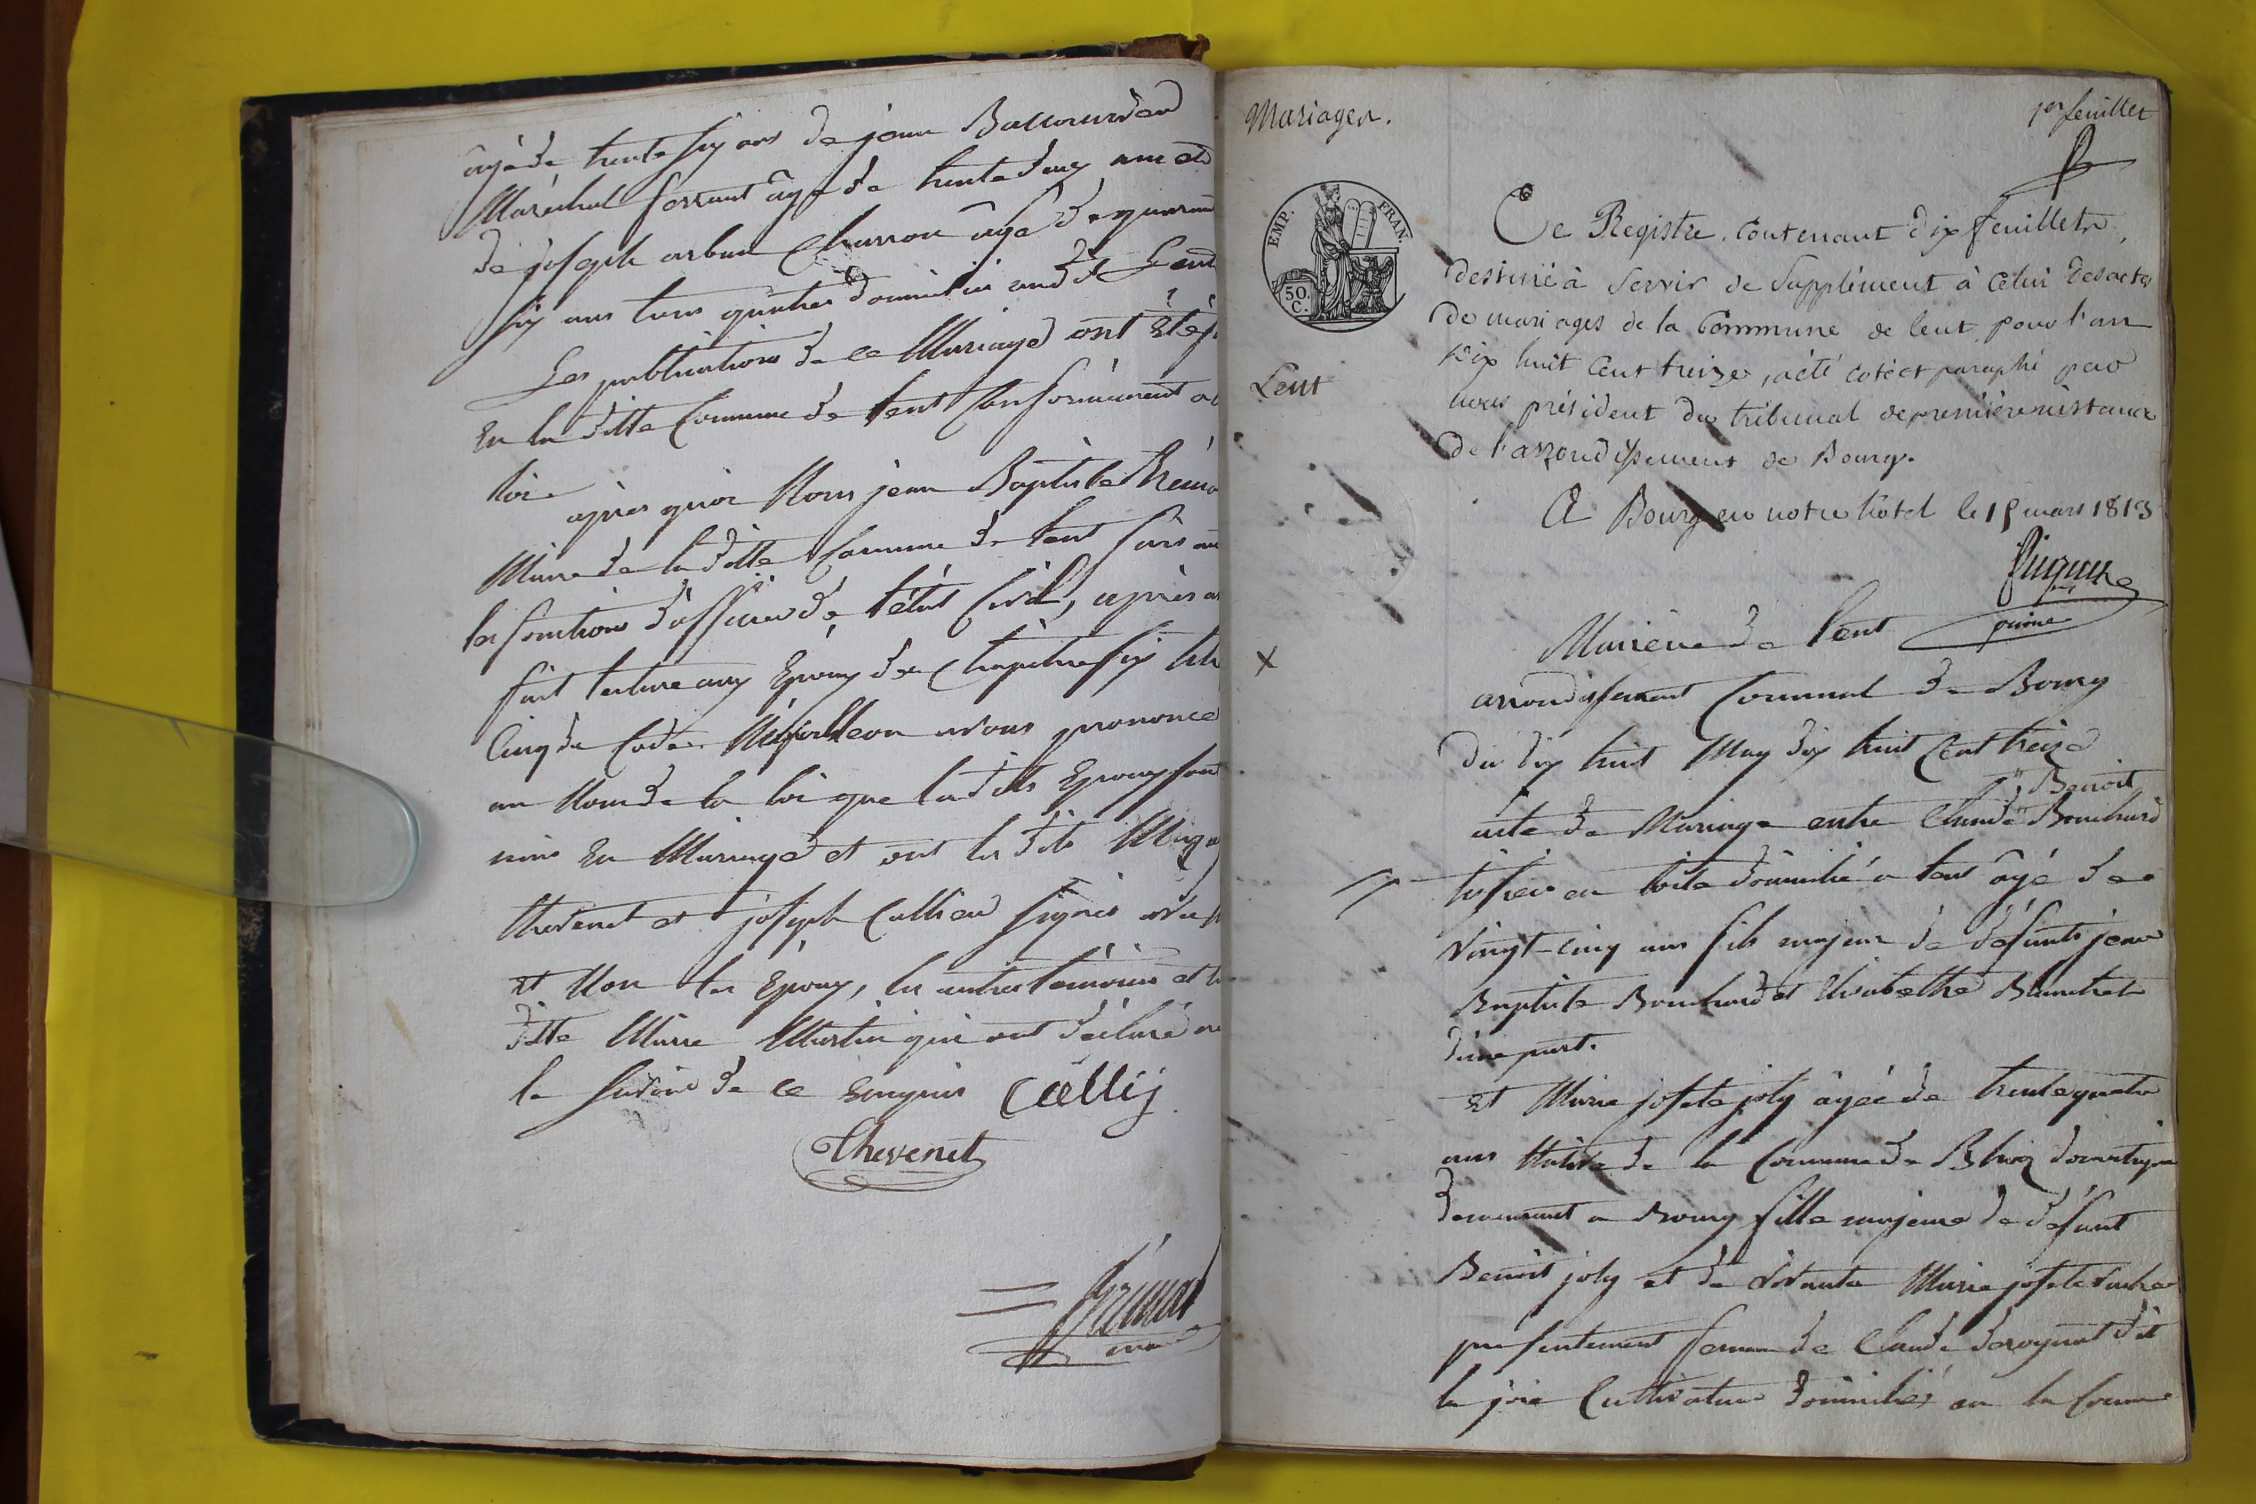 âgé de trente six ans de jean
Maréchal ferrant âgé de trente deux ans et
de joseph arban Charron âgé de quarante
six ans tous quatres domiciliés audit Lent
Les publications de ce Mariage ont été
En la ditte Commune de Lent Conformément
loi.
après quoi Nous jean Baptiste
Maire de la ditte Commune de Lent
les fonctions d'officier de l'état Civil, après
fait lecture aux Epoux du Chapitre six
Cinq du Code Napoléon avons prononcé
au Nom de la loi que les dits Epoux sont
unis En Mariage et ont les dits
thevenet et joseph Cullieu signés
et Non les Epoux, les autres témoins et
ditte Marie Martin qui ont déclaré
le savoir de ce enquis
Thevenet
Mariages.
1er feuillet
EMP. FRAN.
50. C.
Ce Registre, contenant dix feuillets,
destiné à servir de supplément à celui des actes
de mariages de la Commune de lent, pour l'an
dix huit cent treize, a été coté et paraphé par
nous président du tribunal de première instance
de l'arrondissement de Bourg.
Lent
A Bourg en notre hôtel le 15 mars 1813
Mairie de Lent
arrondissement Communal de Bourg
du dix huit May dix huit Cent treize
Benoit
acte de Mariage entre Claude Bouchard
tissier en toile domicilié a lent âgé de
vingt-cinq ans fils majeur de défunts jean
Baptiste Bouchard et Elisabethe
d'une part.
et Marie josete joly âgée de trente quatre
ans Native de la Commune de domestique
demeurant a Bourg fille majeure de défunt
Benoit joly et de vivante Marie josete
présentement femme de Claude dit
la joie Cultivateur domiciliés en la Commune